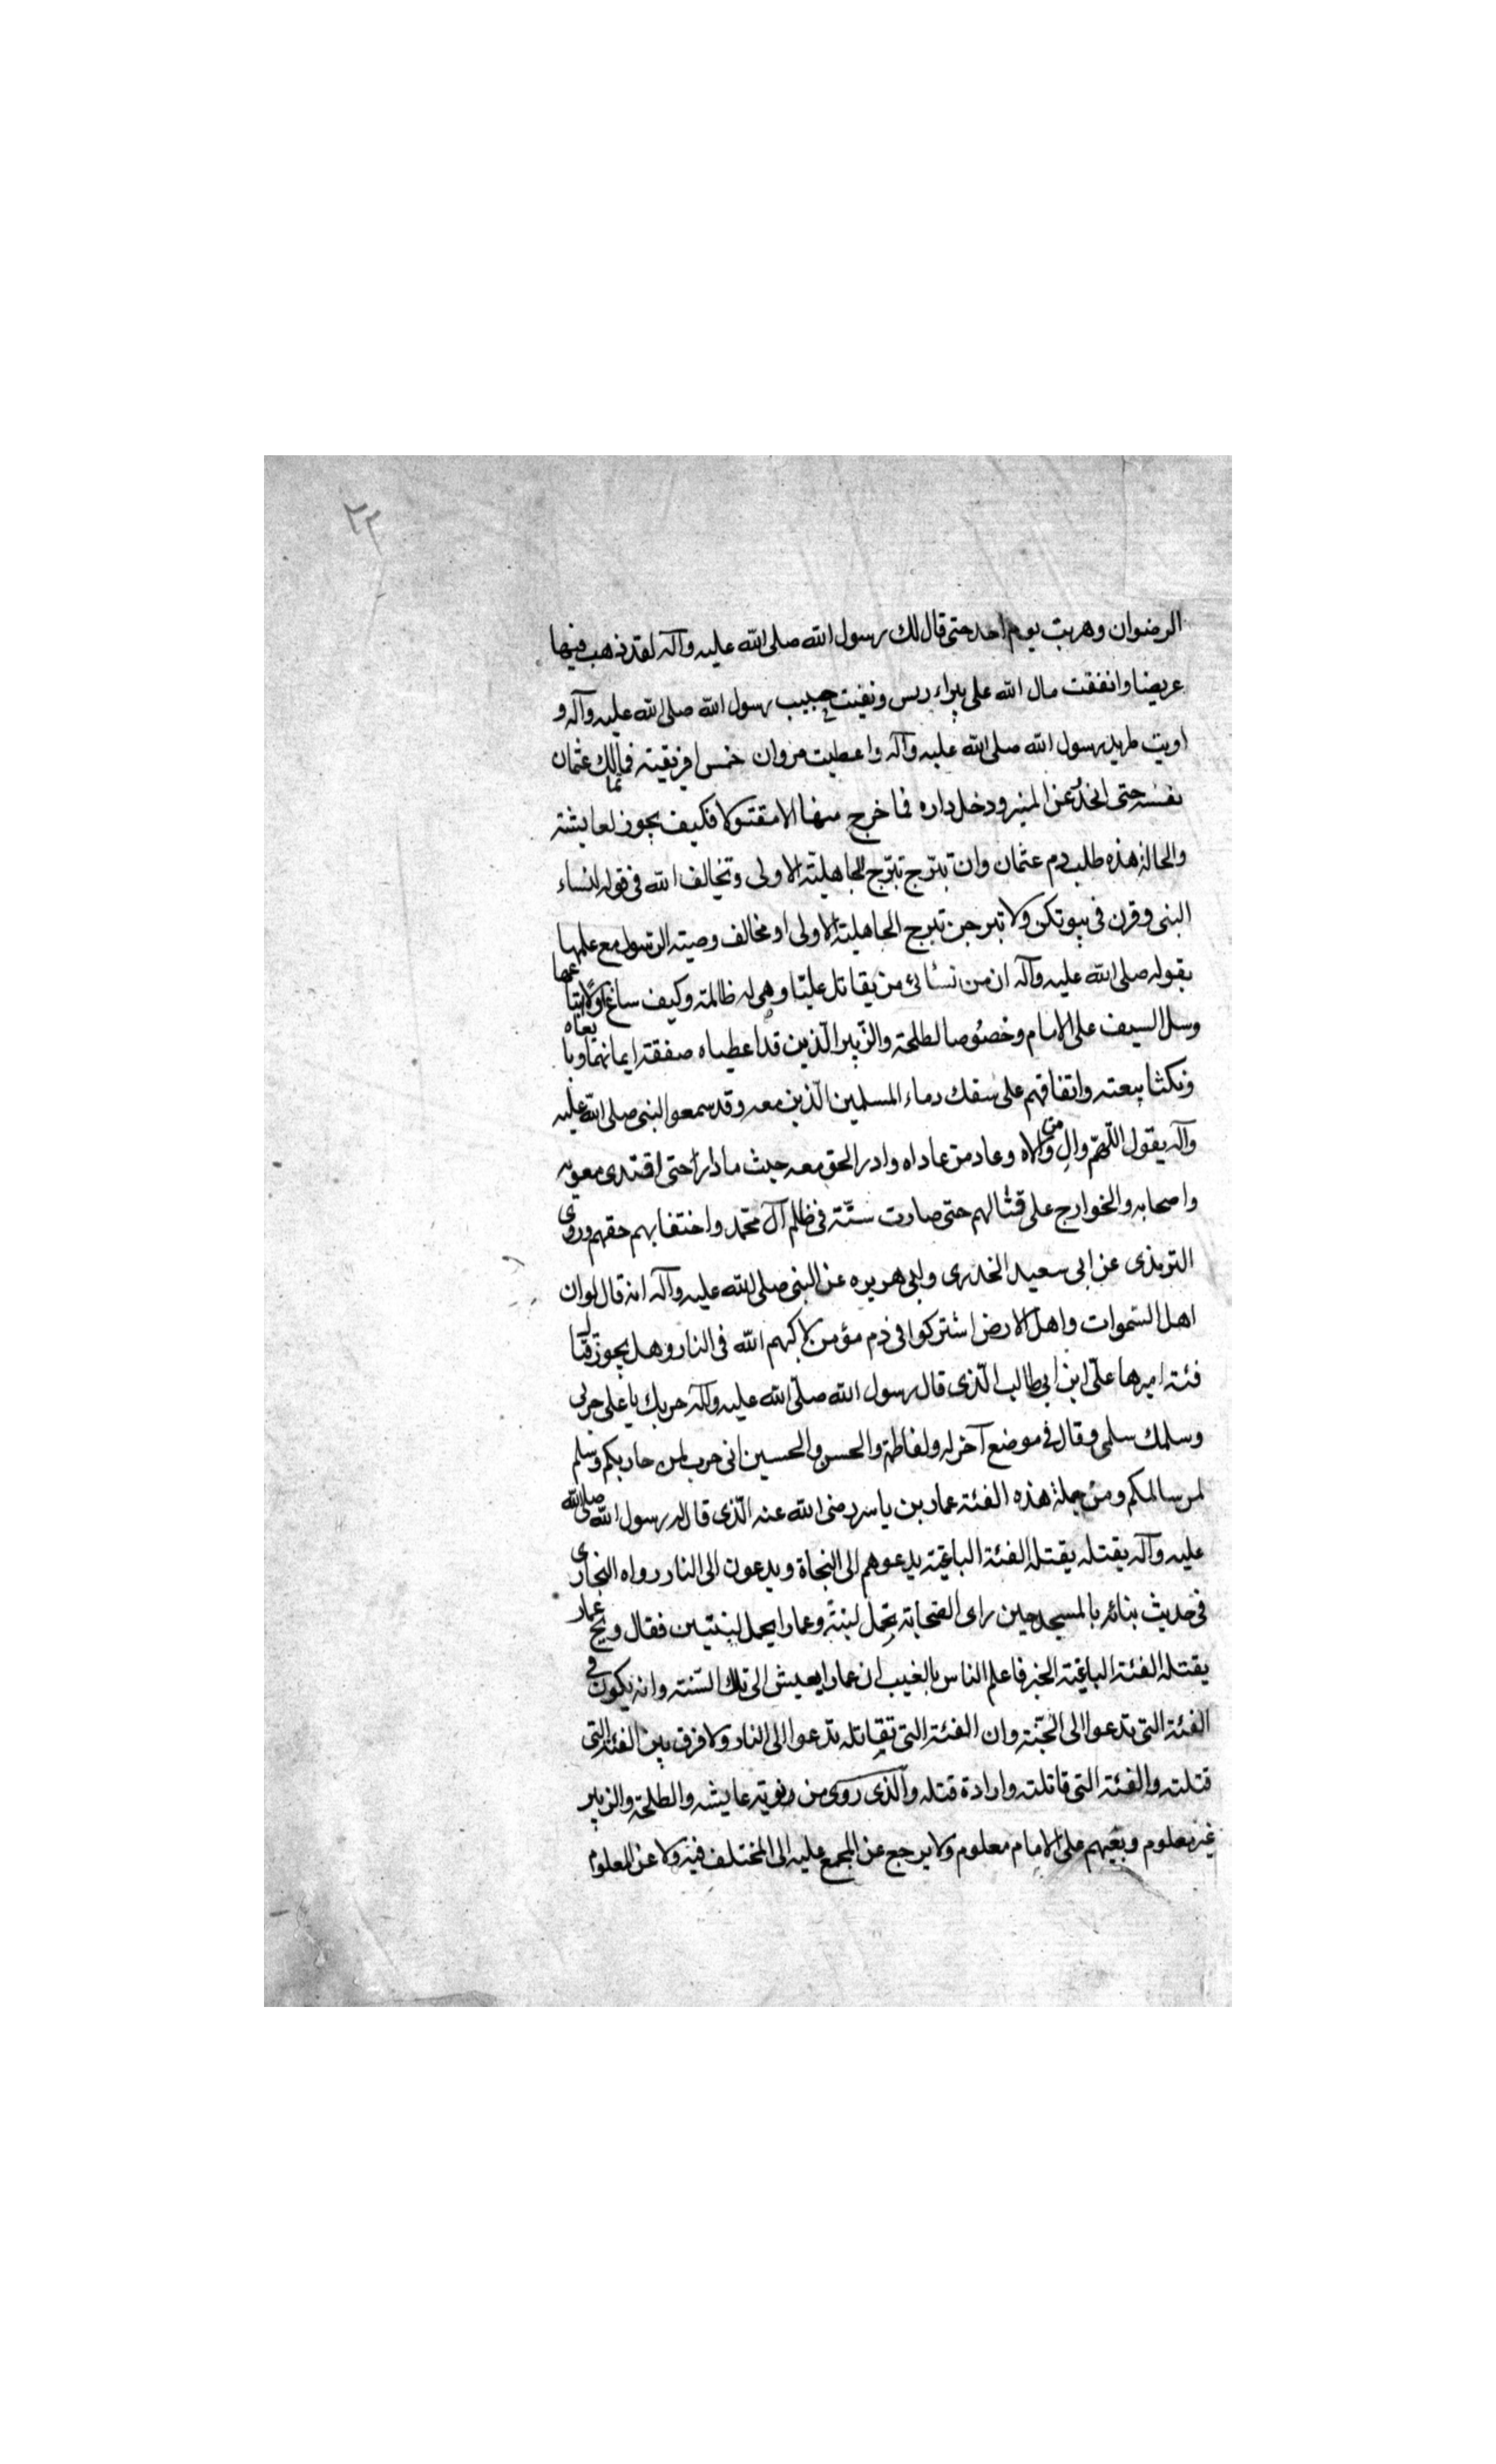 ٢٢
الرضوان وهربت يوم احد حتى قال لك رسول الله صلى الله عليه وآله لقد ذهب فيها
عريضا وانفقت مال الله على بئراء ريس ونفيت حبيب رسول الله صلى الله عليه وآله و
اويت طريد رسول الله صلى الله عليه وآله واعطيت مروان خمس افريقية فما تمالك عثمان
نفسه حتى انحدر عن المنبر ودخل داره فما خرج منها الا مقتولا فكيف يجوز لعايشة
والحالة هذه طلب دم عثمان وان تبترج تبترج الجاهلية الاولى وتخالف الله في قوله لنساء
النبى وقرن فى بيوتكن ولا تبرجن تبرج الجاهلية الاولى او مخالف وصية الرسول مع علمها
بقوله صلى الله عليه وآله ان من نسائى من يقاتل عليّا وهى له ظالمة وكيف ساغ
وسل السيف على الامام وخصوصا لطلحة والزبير الّذين قد اعطياه صفقة ايمانهما وبايعاه
ونكثا بيعته واتفاقهم على سفك دماء المسلمين الّذين معه وقد سمعوا النبى صلى الله عليه
وآله يقول اللّهمّ وال من والاه وعاد من عاداه وادر الحق معه حيث ما دار حتى اقتدى معوية
واصحابه والخوارج على قتالهم حتى صارت سنّة فى ظلم آل محمّد واختفابهم حقهم وروى
الترمذى عن ابى سعيد الخدرى وابى هريره عن النبى صلى الله عليه وآله انه قال لو ان
اهل السّموات واهل الارض اشتركوا فى دم مؤمن لاكبهم الله فى النار وهل يجوز قتال
فئة اميرها علىّ ابن ابى طالب الّذى قال رسول الله صلّى الله عليه وآله حربك يا على حربى
وسلمك سلمى وقال فى موضع آخر له ولفاطمة والحسن والحسين انى حرب لمن حاربكم وسلم
لمن سالمكم ومن جملة هذه الفئة عمار بن ياسر رضى الله عنه الّذى قال له رسول الله صلى الله
عليه وآله يقتله يقتله الفئة الباغية يدعوهم الى النجاة ويدعون الى النار رواه البخارى
فى حديث بنائه بالمسجد حين راى الصّحابة يحمل لبنة وعمار ايحمل لبنتين فقال ويح عمار
يقتله الفئة الباغية الخبر فاعلم الناس بالغيب ان عمار ايعيش الى تلك السّنة وانه يكون فى
الفئة التى تدعوا الى الجنّة وان الفئة التى تقاتله تدعوا الى النار ولا فرق بين الفئة التى
قتلته والفئة التى قاتلته وارادة قتله والّذى روى من توبة عايشه والطلحة والزبير
غير معلوم وبغيهم على الامام معلوم ولا يرجع عن المجمع عليه الى المختلف فيه ولا عن المعلوم